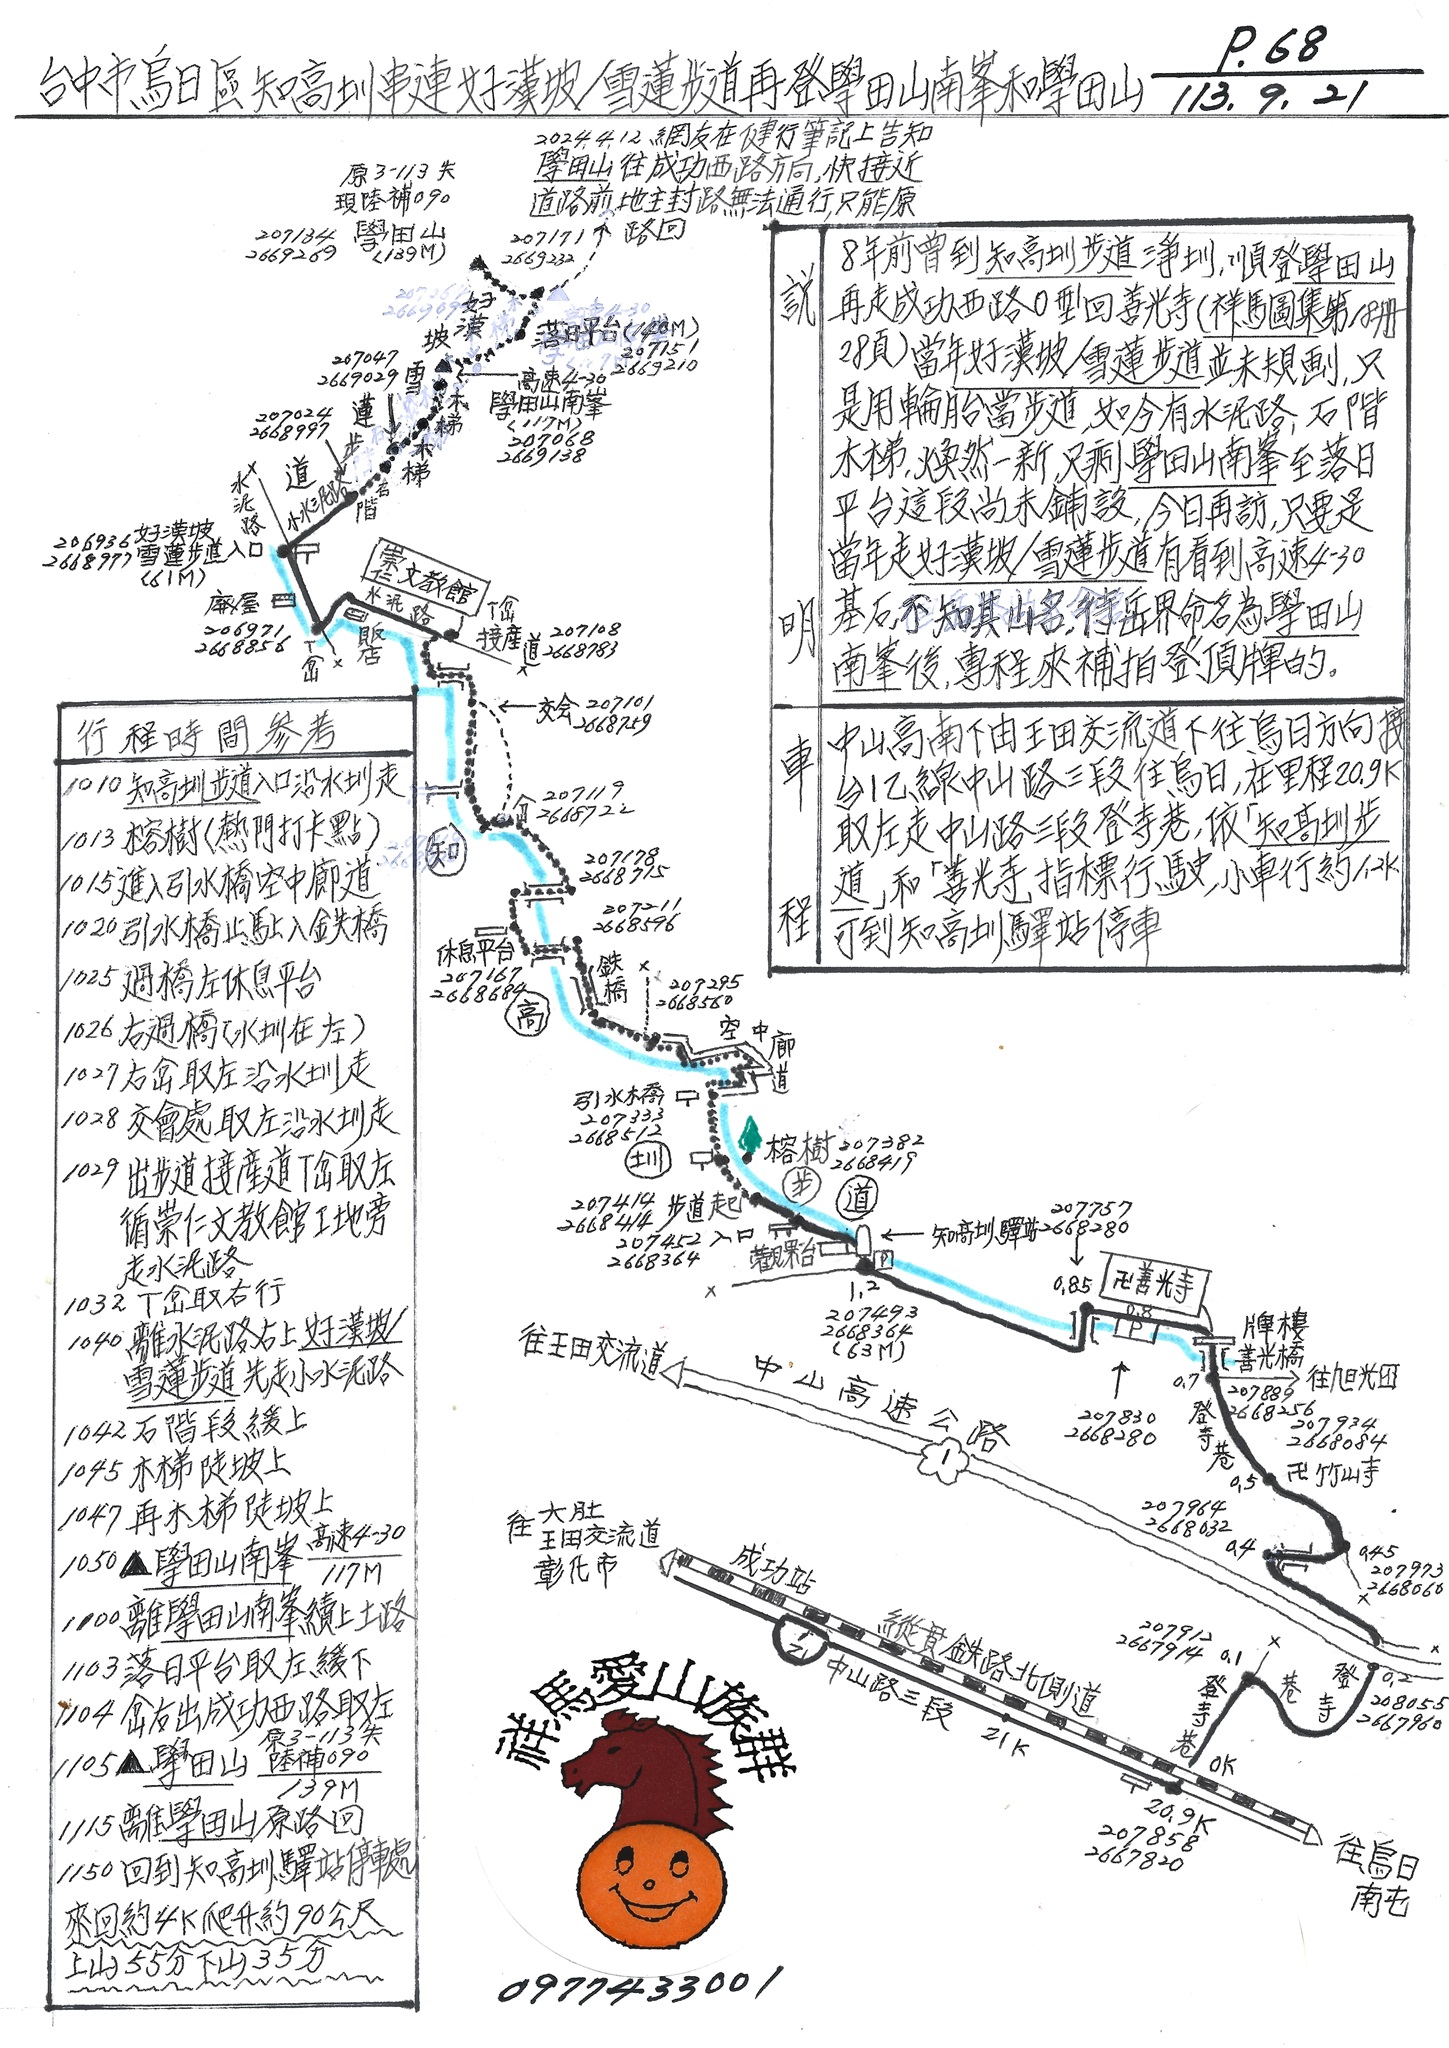 P.68
台中市烏日區知高圳串連好漢坡/雪蓮步道再登學田山南峯和學田山
113.9.21
2024.4.12 網友在健行筆記上告知
學田山往成功西路方向,快接近
道路前地主封路無法通行,只能原
路回
原3-113失
現陸補090
學田山
(139M)
207134
2669269
207171
2669232
好漢坡
落日平台(140M)
207151
2669210
207047
2669029
雪蓮步道
高速4-30
學田山南峯
(117M)
207068
2669138
木梯
木梯
207024
2668997
石階
小水泥路
水泥路
206936
2668977
好漢坡
雪蓮步道入口
(61M)
廠屋
206971
2668856
丁岔
飯店
水泥路
崇仁文教館
丁岔
接產道
207108
2668783
交会
207101
2668759
207119
2668722
知
207178
2668715
207211
2668596
休息平台
207167
2668684
鉄橋
高
207295
2668560
空中廊道
引水木橋
207333
2668512
圳
榕樹
207382
2668419
步
道
207414
2668414
步道起
207452
2668364
入口
觀景台
知高圳驛站
P
1.2
207493
2668364
(63M)
207757
2668280
0.85
卍善光寺
0.8
P
207830
2668280
牌樓
善光橋
0.7
207889
2668256
往旭光国
登寺巷
207934
2668084
卍竹山寺
0.5
207964
2668032
0.4
0.45
207973
2668060
往王田交流道
中山高速公路
1
0.2
208055
2667960
登寺巷
207912
2667914
0.1
登寺巷
0K
往大肚
王田交流道
彰化市
成功站
縱貫鉄路北側道
1乙
中山路三段
21K
20.9K
207858
2667820
往烏日
南屯
說明
8年前曾到知高圳步道淨圳,順登學田山
再走成功西路O型回善光寺(祥馬圖集第18册
28頁)當年好漢坡/雪蓮步道並未規劃,只
是用輪胎當步道,如今有水泥路,石階
木梯,煥然一新,只剩學田山南峯至落日
平台這段尚未鋪設,今日再訪,只要是
當年走好漢坡/雪蓮步道有看到高速4-30
基石,不知其山名,待岳界命名為學田山
南峯後,專程來補拍登頂牌的。
車程
中山高南下由王田交流道下往烏日方向接
台1乙線中山路三段往烏日,在里程20.9K
取左走中山路三段登寺巷,依「知高圳步
道」和「善光寺」指標行駛,小車行約1.2K
可到知高圳驛站停車
行程時間參考
1010 知高圳步道入口沿水圳走
1013 榕樹(熱門打卡點)
1015 進入引水橋空中廊道
1020 引水橋止點入鉄橋
1025 過橋左休息平台
1026 右過橋(水圳在左)
1027 右岔取左沿水圳走
1028 交會處取左沿水圳走
1029 出步道接產道丁岔取左
循崇仁文教館工地旁
走水泥路
1032 丁岔取右行
1040 離水泥路右上好漢坡/
雪蓮步道先走小水泥路
1042 石階段緩上
1045 木梯陡坡上
1047 再木梯陡坡上
1050 ▲學田山南峯 高速4-30
117M
1100 離學田山南峯續上土路
1103 落日平台取左緩下
1104 岔右出成功西路取左
1105 ▲學田山 原3-113失
陸補090
139M
1115 離學田山原路回
1150 回到知高圳驛站停車處
來回約4K爬升約90公尺
上山55分下山35分
祥馬愛山族群
0977433001